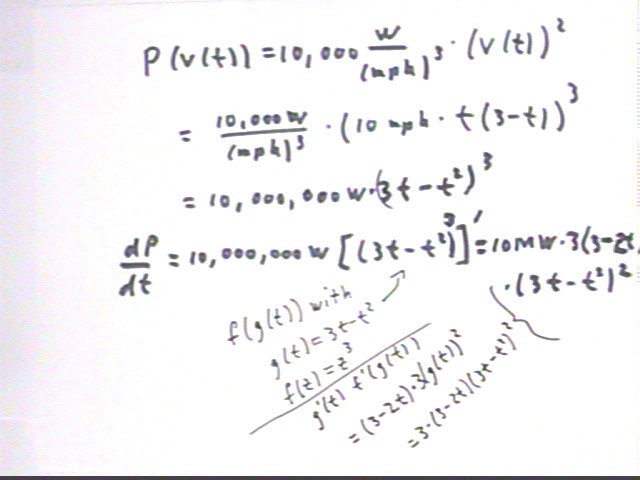 P(v(t)) = 10,000 W/(mph)^3 · (v(t))^2
= 10,000 W/(mph)^3 · (10 mph · t(3-t))^3
= 10,000,000 W·(3t-t^2)^3
dP/dt = 10,000,000 W [(3t-t^2)^3]' = 10 MW·3(3-2t
·(3t-t^2)^2
f(g(t)) with
g(t) = 3t-t^2
f(z) = z^3
g'(t) f'(g(t))
= (3-2t)·3(g(t))^2
= 3·(3-2t)(3t-t^2)^2